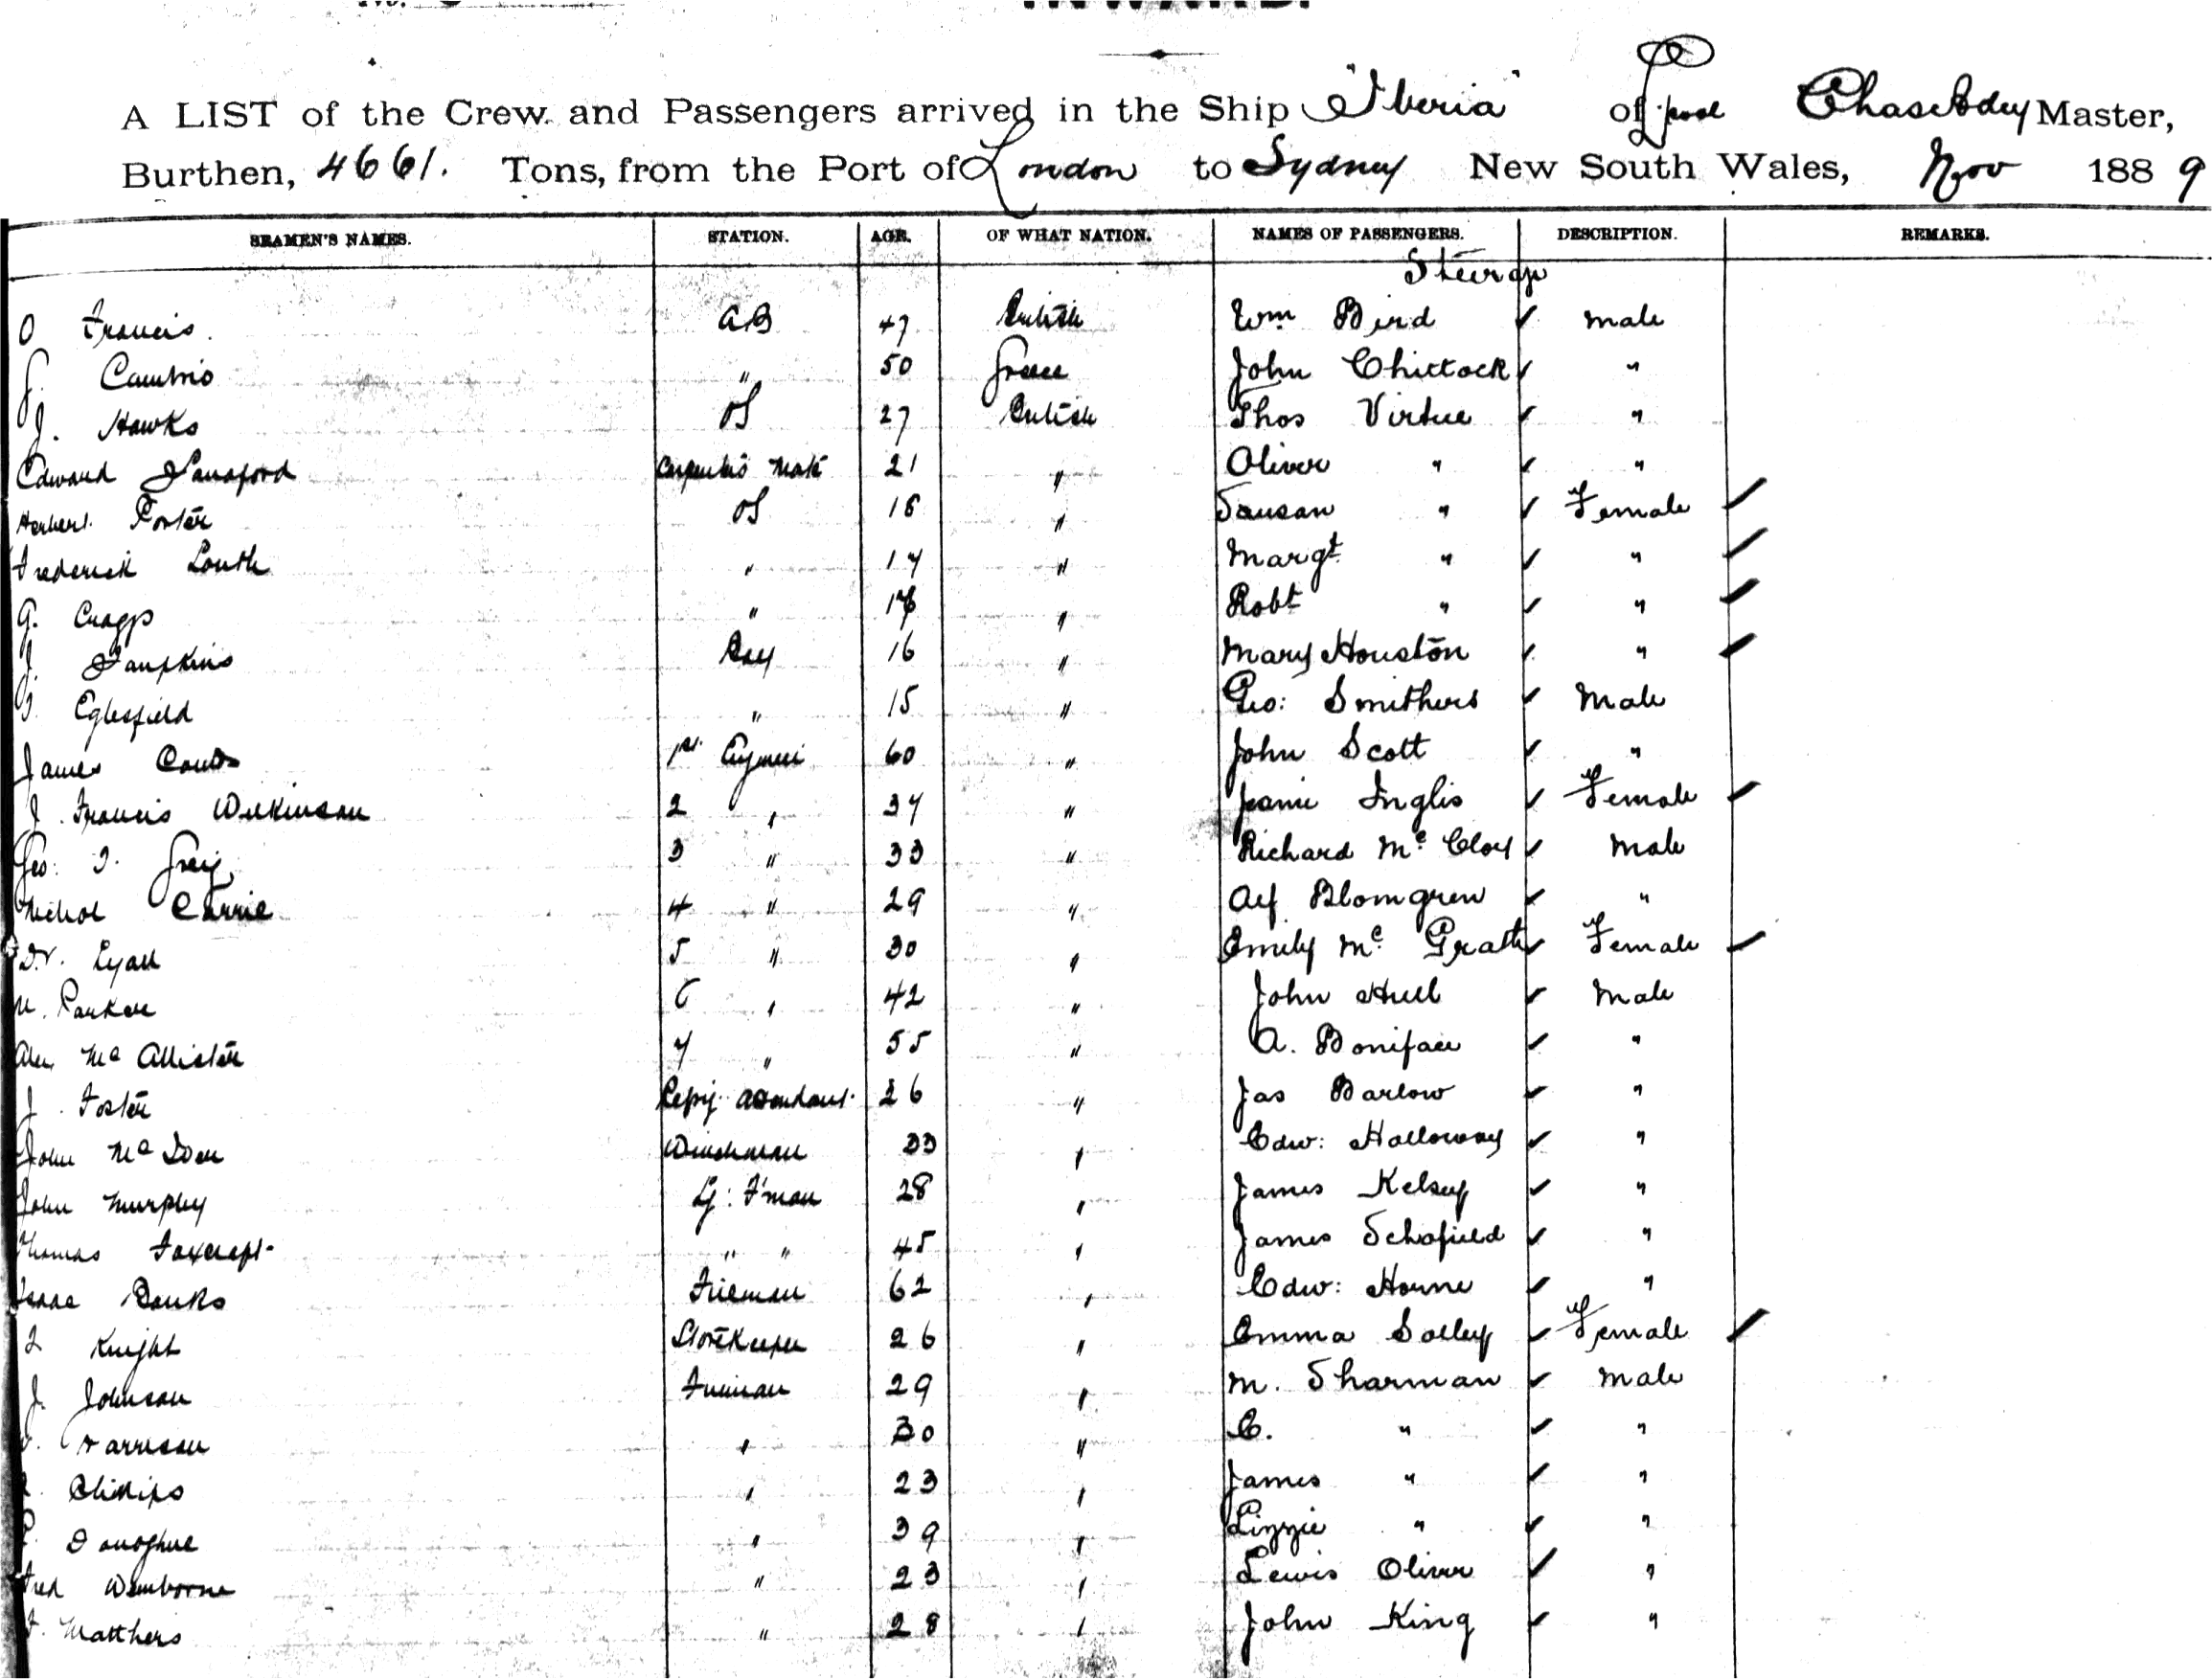 A LIST of the Crew and Passengers arrived in the Ship "Iberia" of L'pool Master,
Burthen, 4661. Tons, from the Port of London to Sydney New South Wales, Nov 1889
SEAMEN'S NAMES. STATION. AGE. OF WHAT NATION. NAMES OF PASSENGERS. DESCRIPTION. REMARKS.
Steerage
O Francis. AB 47 British Wm Bird ✓ Male
50 Greece John Chittock ✓ "
J. Hawks OS 27 British Thos Virtue ✓ "
Edward Carpenters Mate 21 " Oliver " ✓ "
Herbert Porter OS 18 " Sausan " ✓ Female ✓
Frederick Louth " 17 " Margt " ✓ " ✓
G. Craggs " " Robt " ✓ " ✓
J. Boy 16 " Mary Houston ✓ " ✓
Eglesfield " 15 " Geo: Smithers ✓ Male
James 1st Engineer 60 " John Scott ✓ "
J. Francis Wilkinson 2 " 34 " Jeanie Inglis ✓ Female ✓
Geo. Greig 3 " 33 " Richard Mc Cloy ✓ Male
Nichol Currie 4 " 29 " Alf Blomgren ✓ "
Lyall 5 " 30 " Emily Mc Grath ✓ Female ✓
Parker 6 " 42 " John Hull ✓ Male
Alex Mc Allister 7 " 55 " A. Boniface ✓ "
J. Foster Refrig. attendant. 26 " Jas Barlow ✓ "
John Winchman 33 " Edw: Holloway ✓ "
John Murphy Lg: F'man 28 " James Kelsey ✓ "
Thomas Foxcroft " " 45 " James Schofield ✓ "
Isaac Banks Fireman 62 " Edw: Horne ✓ "
Knight Storekeeper 26 " Emma Solley ✓ Female ✓
J. Johnson Fireman 29 " M. Sharman ✓ Male
Harrison " 30 " C. " ✓ "
Phillips " 23 " James " ✓ "
Donoghue " 39 " Lizzie " ✓ "
Fred Wimborne " 23 " Lewis Oliver ✓ "
Matthers " 28 " John King ✓ "